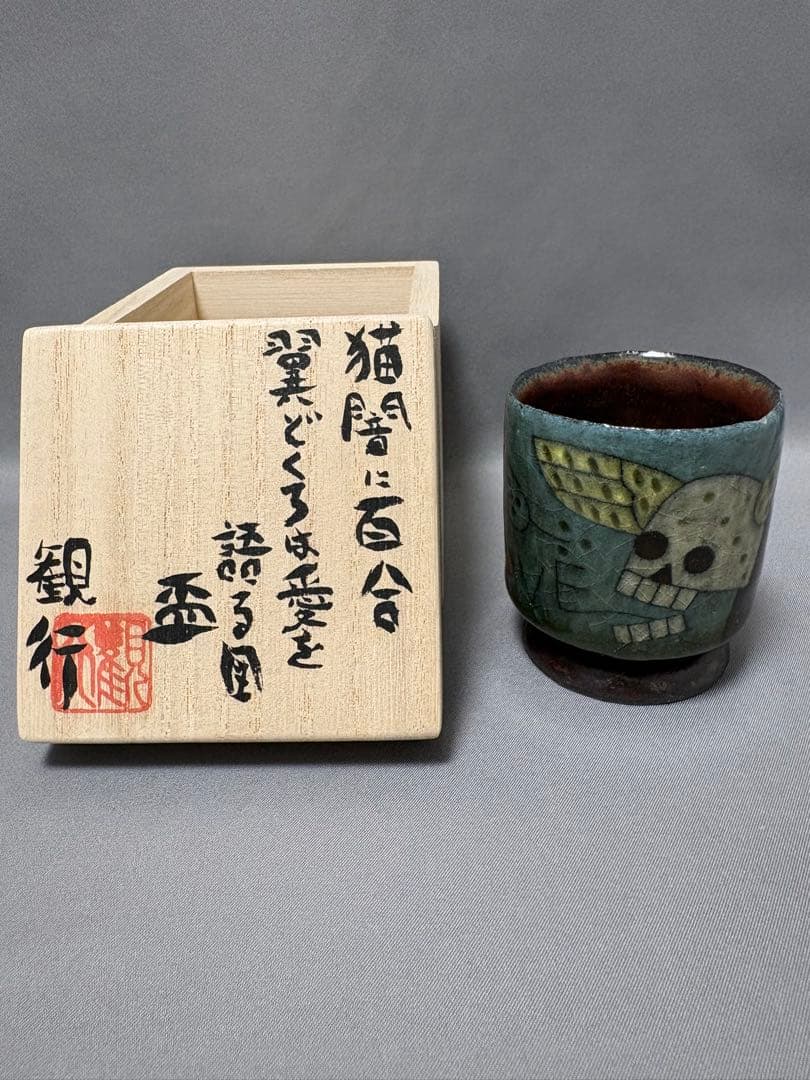 猫闇に百合
翼どくろは愛を
語る図
盃
観行